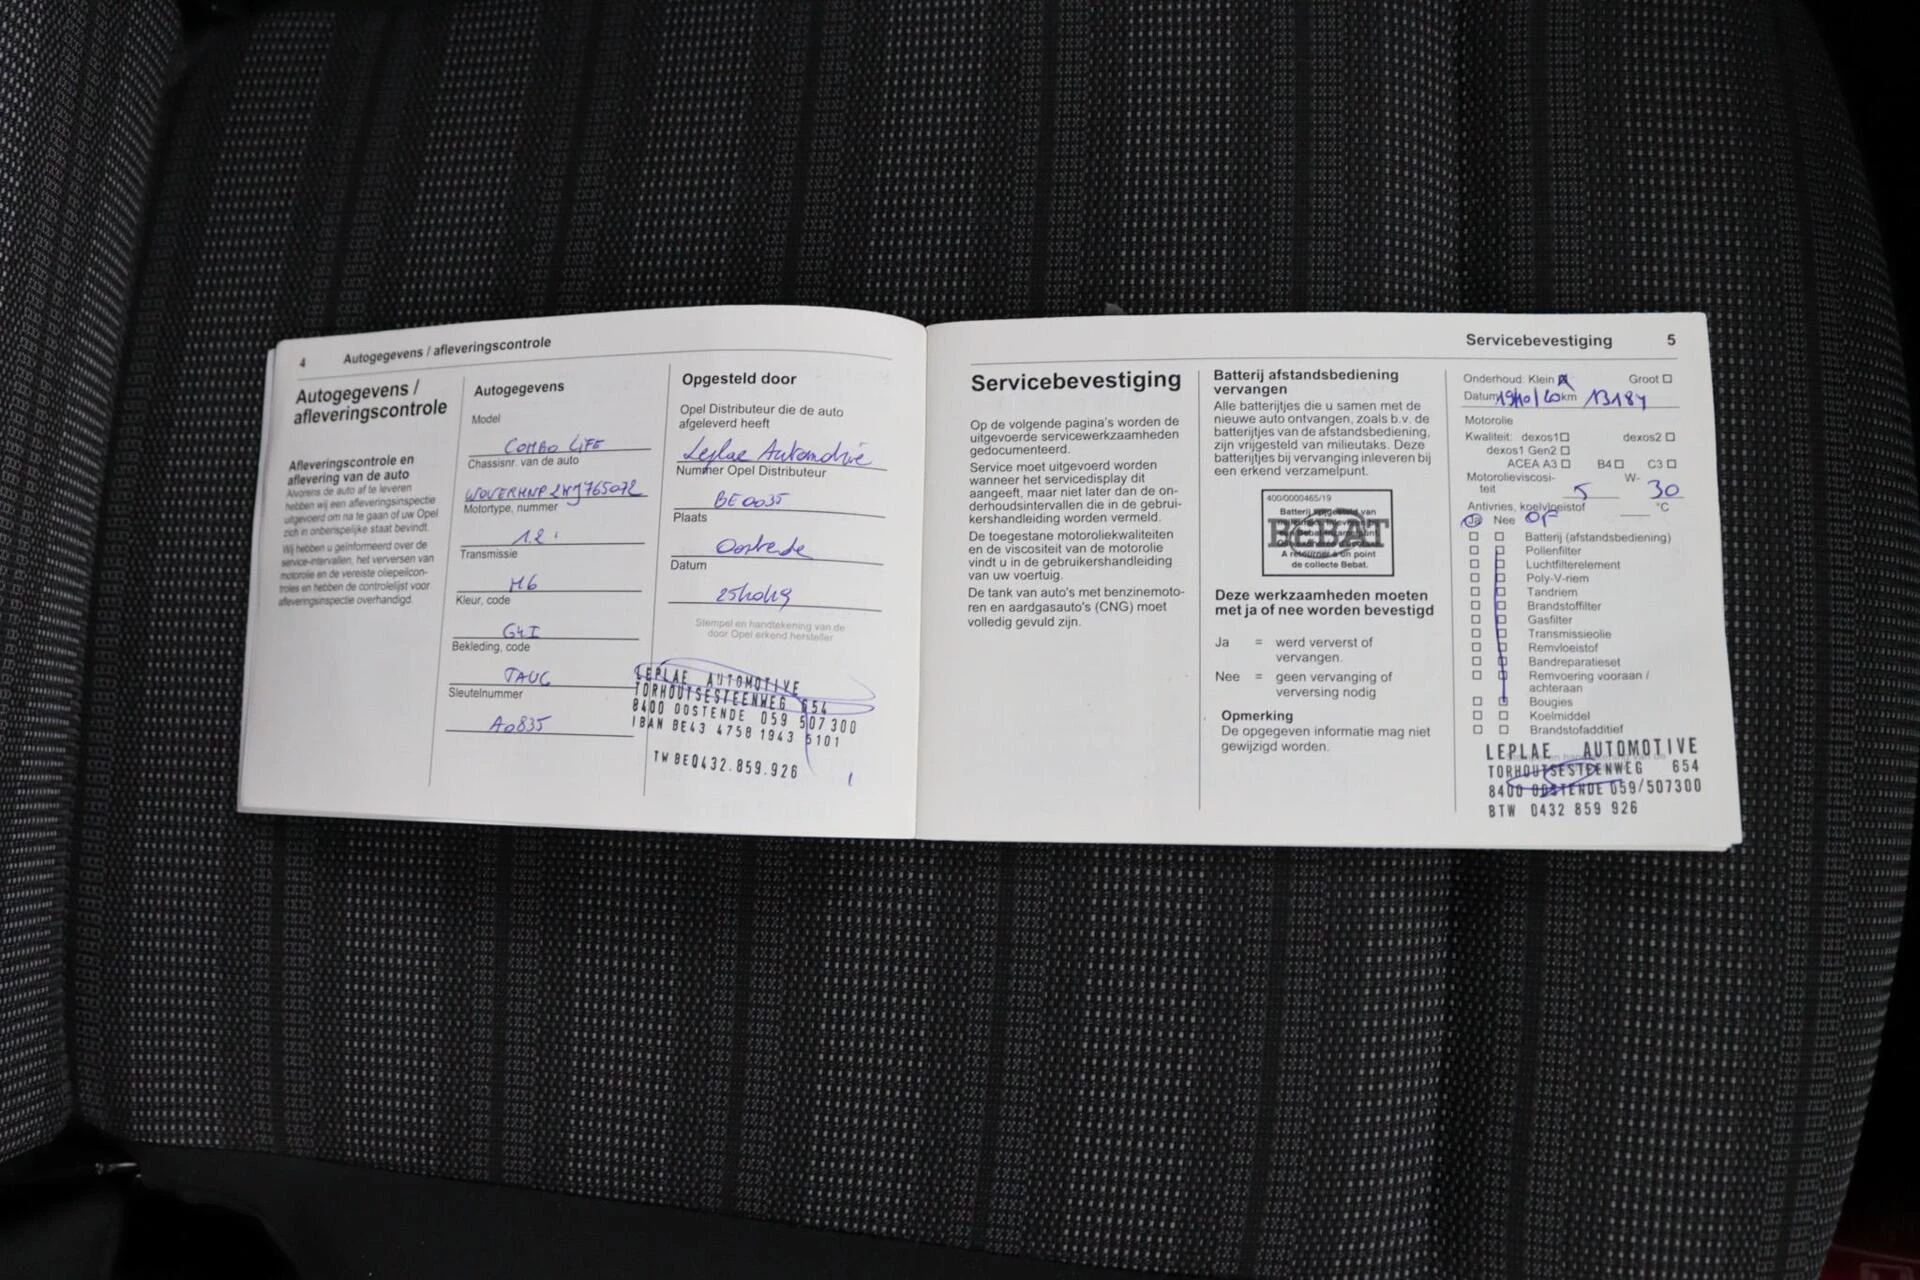 4 Autogegevens / afleveringscontrole
Autogegevens /
afleveringscontrole
Afleveringscontrole en
aflevering van de auto
Alvorens de auto af te leveren
hebben wij een afleveringsinspectie
uitgevoerd om na te gaan of uw Opel
zich in onberispelijke staat bevindt.
Wij hebben u geïnformeerd over de
service-intervallen, het verversen van
motorolie en de vereiste oliepeilcon-
troles en hebben de controlelijst voor
afleveringsinspectie overhandigd.
Autogegevens
Model
COMBO LIFE
Chassisnr. van de auto
Motortype, nummer
1.2 i
Transmissie
M6
Kleur, code
G4I
Bekleding, code
Sleutelnummer
A0835
Opgesteld door
Opel Distributeur die de auto
afgeleverd heeft
Leplae Automotive
Nummer Opel Distributeur
BE0035
Plaats
Oostende
Datum
Stempel en handtekening van de
door Opel erkend hersteller
LEPLAE AUTOMOTIVE
TORHOUTSESTEENWEG 654
8400 OOSTENDE 059 507300
IBAN BE43 4758 1943 5101
TW BE0432.859.926
Servicebevestiging 5
Servicebevestiging
Op de volgende pagina's worden de
uitgevoerde servicewerkzaamheden
gedocumenteerd.
Service moet uitgevoerd worden
wanneer het servicedisplay dit
aangeeft, maar niet later dan de on-
derhoudsintervallen die in de gebrui-
kershandleiding worden vermeld.
De toegestane motoroliekwaliteiten
en de viscositeit van de motorolie
vindt u in de gebruikershandleiding
van uw voertuig.
De tank van auto's met benzinemoto-
ren en aardgasauto's (CNG) moet
volledig gevuld zijn.
Batterij afstandsbediening
vervangen
Alle batterijtjes die u samen met de
nieuwe auto ontvangen, zoals b.v. de
batterijtjes van de afstandsbediening,
zijn vrijgesteld van milieutaks. Deze
batterijtjes bij vervanging inleveren bij
een erkend verzamelpunt.
400/0000465/19
BEBAT
A retourner à un point
de collecte Bebat.
Deze werkzaamheden moeten
met ja of nee worden bevestigd
Ja = werd ververst of
vervangen.
Nee = geen vervanging of
verversing nodig
Opmerking
De opgegeven informatie mag niet
gewijzigd worden.
Onderhoud: Klein Groot
Datum 19/10/20 km 13184
Motorolie
Kwaliteit: dexos1 dexos2
dexos1 Gen2
ACEA A3 B4 C3
Motorolieviscosi- W-
teit 5 30
Antivries, koelvloeistof °C
Ja Nee OF
Batterij (afstandsbediening)
Pollenfilter
Luchtfilterelement
Poly-V-riem
Tandriem
Brandstoffilter
Gasfilter
Transmissieolie
Remvloeistof
Bandreparatieset
Remvoering vooraan /
achteraan
Bougies
Koelmiddel
Brandstofadditief
LEPLAE AUTOMOTIVE
TORHOUTSESTEENWEG 654
8400 OOSTENDE 059/507300
BTW 0432 859 926